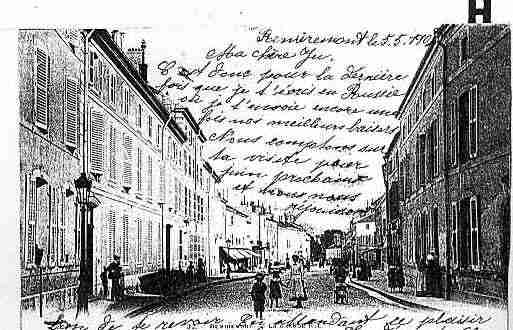 H
Remiremont le 5.5.190
Ma chère Ju.
C'est donc pour la dernière
fois que je t'écris en Russie
et je t'envoie encore une
fois nos meilleurs baisers
Nous comptons sur
ta visite pour
juin prochain
et nous nous
réjouissons
de te revoir
ce plaisir